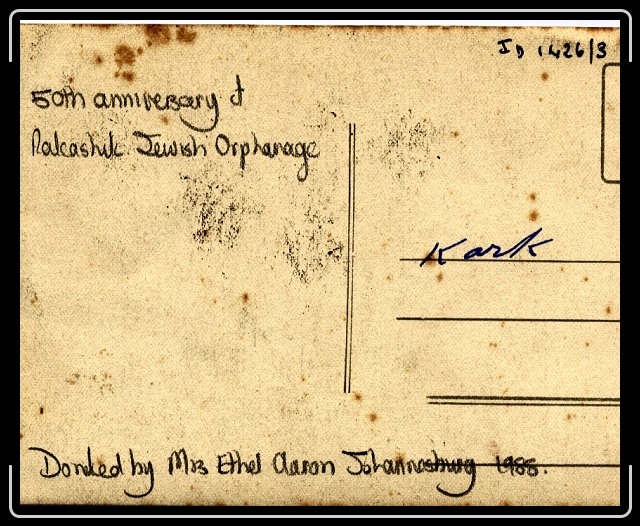 JD 1426/3
50th anniversary of
Jewish Orphanage
Kark
Donated by Mrs Ethel Aaron Johannesburg 1985.